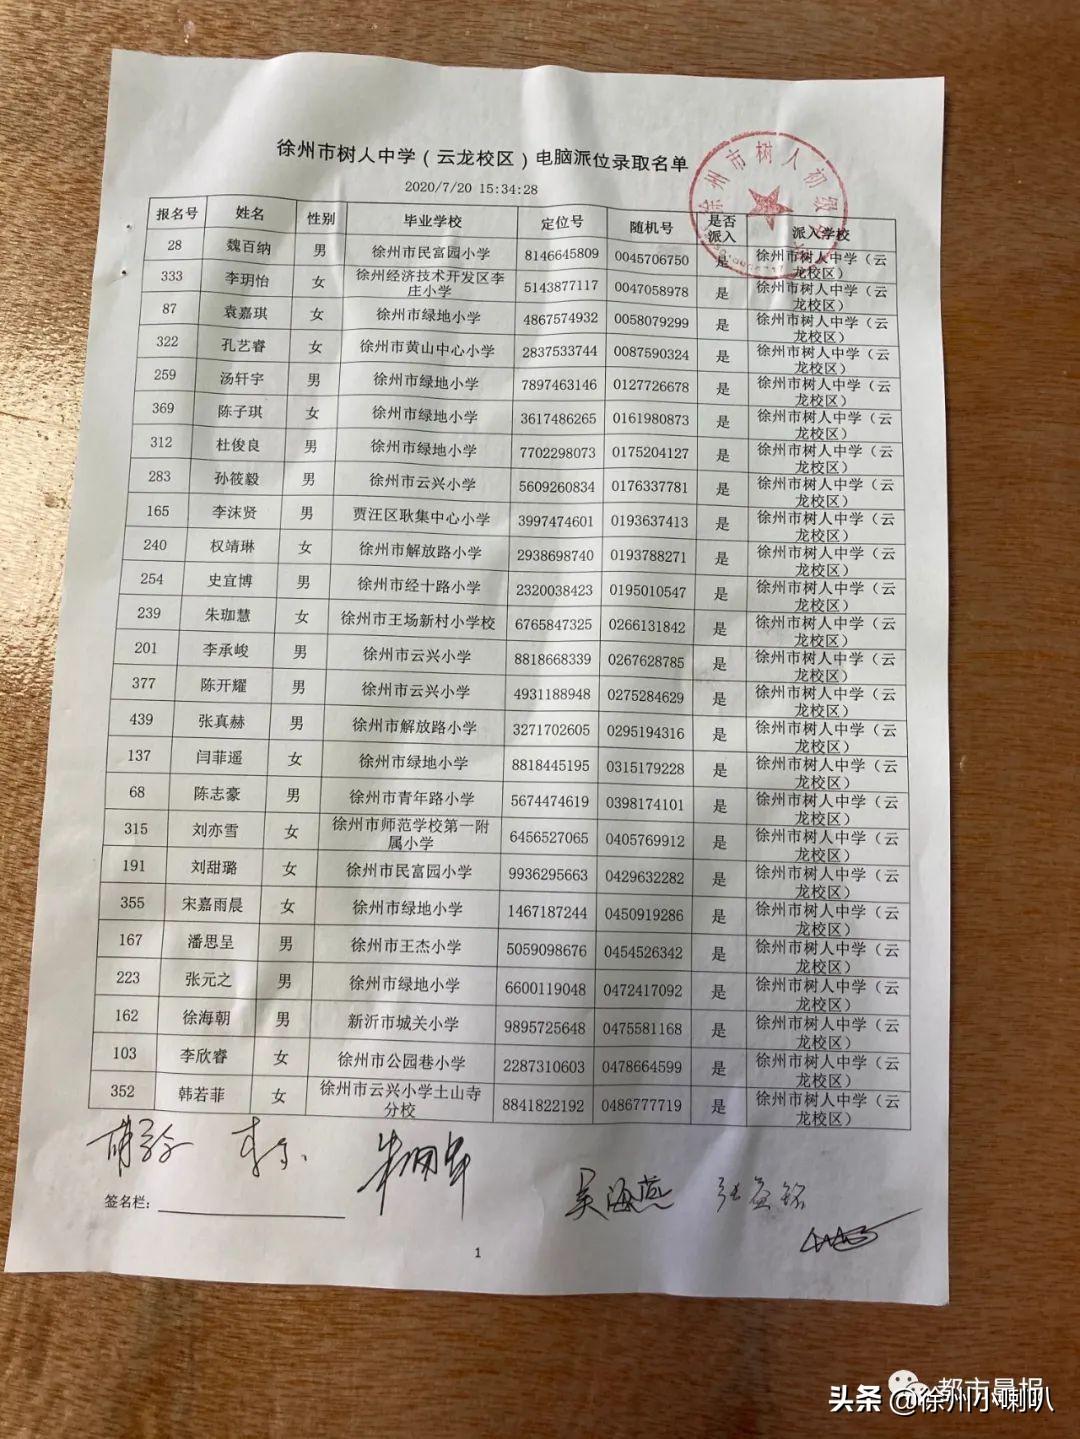 徐州市树人中学（云龙校区）电脑派位录取名单
2020/7/20 15:34:28
徐州市树人初级
报名号 姓名 性别 毕业学校 定位号 随机号 是否派入 派入学校
28 魏百纳 男 徐州市民富园小学 8146645809 0045706750 是 徐州市树人中学（云龙校区）
333 李玥怡 女 徐州经济技术开发区李庄小学 5143877117 0047058978 是 徐州市树人中学（云龙校区）
87 袁嘉琪 女 徐州市绿地小学 4867574932 0058079299 是 徐州市树人中学（云龙校区）
322 孔艺睿 女 徐州市黄山中心小学 2837533744 0087590324 是 徐州市树人中学（云龙校区）
259 汤轩宇 男 徐州市绿地小学 7897463146 0127726678 是 徐州市树人中学（云龙校区）
369 陈子琪 女 徐州市绿地小学 3617486265 0161980873 是 徐州市树人中学（云龙校区）
312 杜俊良 男 徐州市绿地小学 7702298073 0175204127 是 徐州市树人中学（云龙校区）
283 孙筱毅 男 徐州市云兴小学 5609260834 0176337781 是 徐州市树人中学（云龙校区）
165 李沫贤 男 贾汪区耿集中心小学 3997474601 0193637413 是 徐州市树人中学（云龙校区）
240 权靖琳 女 徐州市解放路小学 2938698740 0193788271 是 徐州市树人中学（云龙校区）
254 史宜博 男 徐州市经十路小学 2320038423 0195010547 是 徐州市树人中学（云龙校区）
239 朱珈慧 女 徐州市王场新村小学校 6765847325 0266131842 是 徐州市树人中学（云龙校区）
201 李承峻 男 徐州市云兴小学 8818668339 0267628785 是 徐州市树人中学（云龙校区）
377 陈开耀 男 徐州市云兴小学 4931188948 0275284629 是 徐州市树人中学（云龙校区）
439 张真赫 男 徐州市解放路小学 3271702605 0295194316 是 徐州市树人中学（云龙校区）
137 闫菲遥 女 徐州市绿地小学 8818445195 0315179228 是 徐州市树人中学（云龙校区）
68 陈志豪 男 徐州市青年路小学 5674474619 0398174101 是 徐州市树人中学（云龙校区）
315 刘亦雪 女 徐州市师范学校第一附属小学 6456527065 0405769912 是 徐州市树人中学（云龙校区）
191 刘甜璐 女 徐州市民富园小学 9936295663 0429632282 是 徐州市树人中学（云龙校区）
355 宋嘉雨晨 女 徐州市绿地小学 1467187244 0450919286 是 徐州市树人中学（云龙校区）
167 潘思呈 男 徐州市王杰小学 5059098676 0454526342 是 徐州市树人中学（云龙校区）
223 张元之 男 徐州市绿地小学 6600119048 0472417092 是 徐州市树人中学（云龙校区）
162 徐海朝 男 新沂市城关小学 9895725648 0475581168 是 徐州市树人中学（云龙校区）
103 李欣睿 女 徐州市公园巷小学 2287310603 0478664599 是 徐州市树人中学（云龙校区）
352 韩若菲 女 徐州市云兴小学土山寺分校 8841822192 0486777719 是 徐州市树人中学（云龙校区）
吴海燕
签名栏：
1
都市晨报
头条 @徐州小喇叭